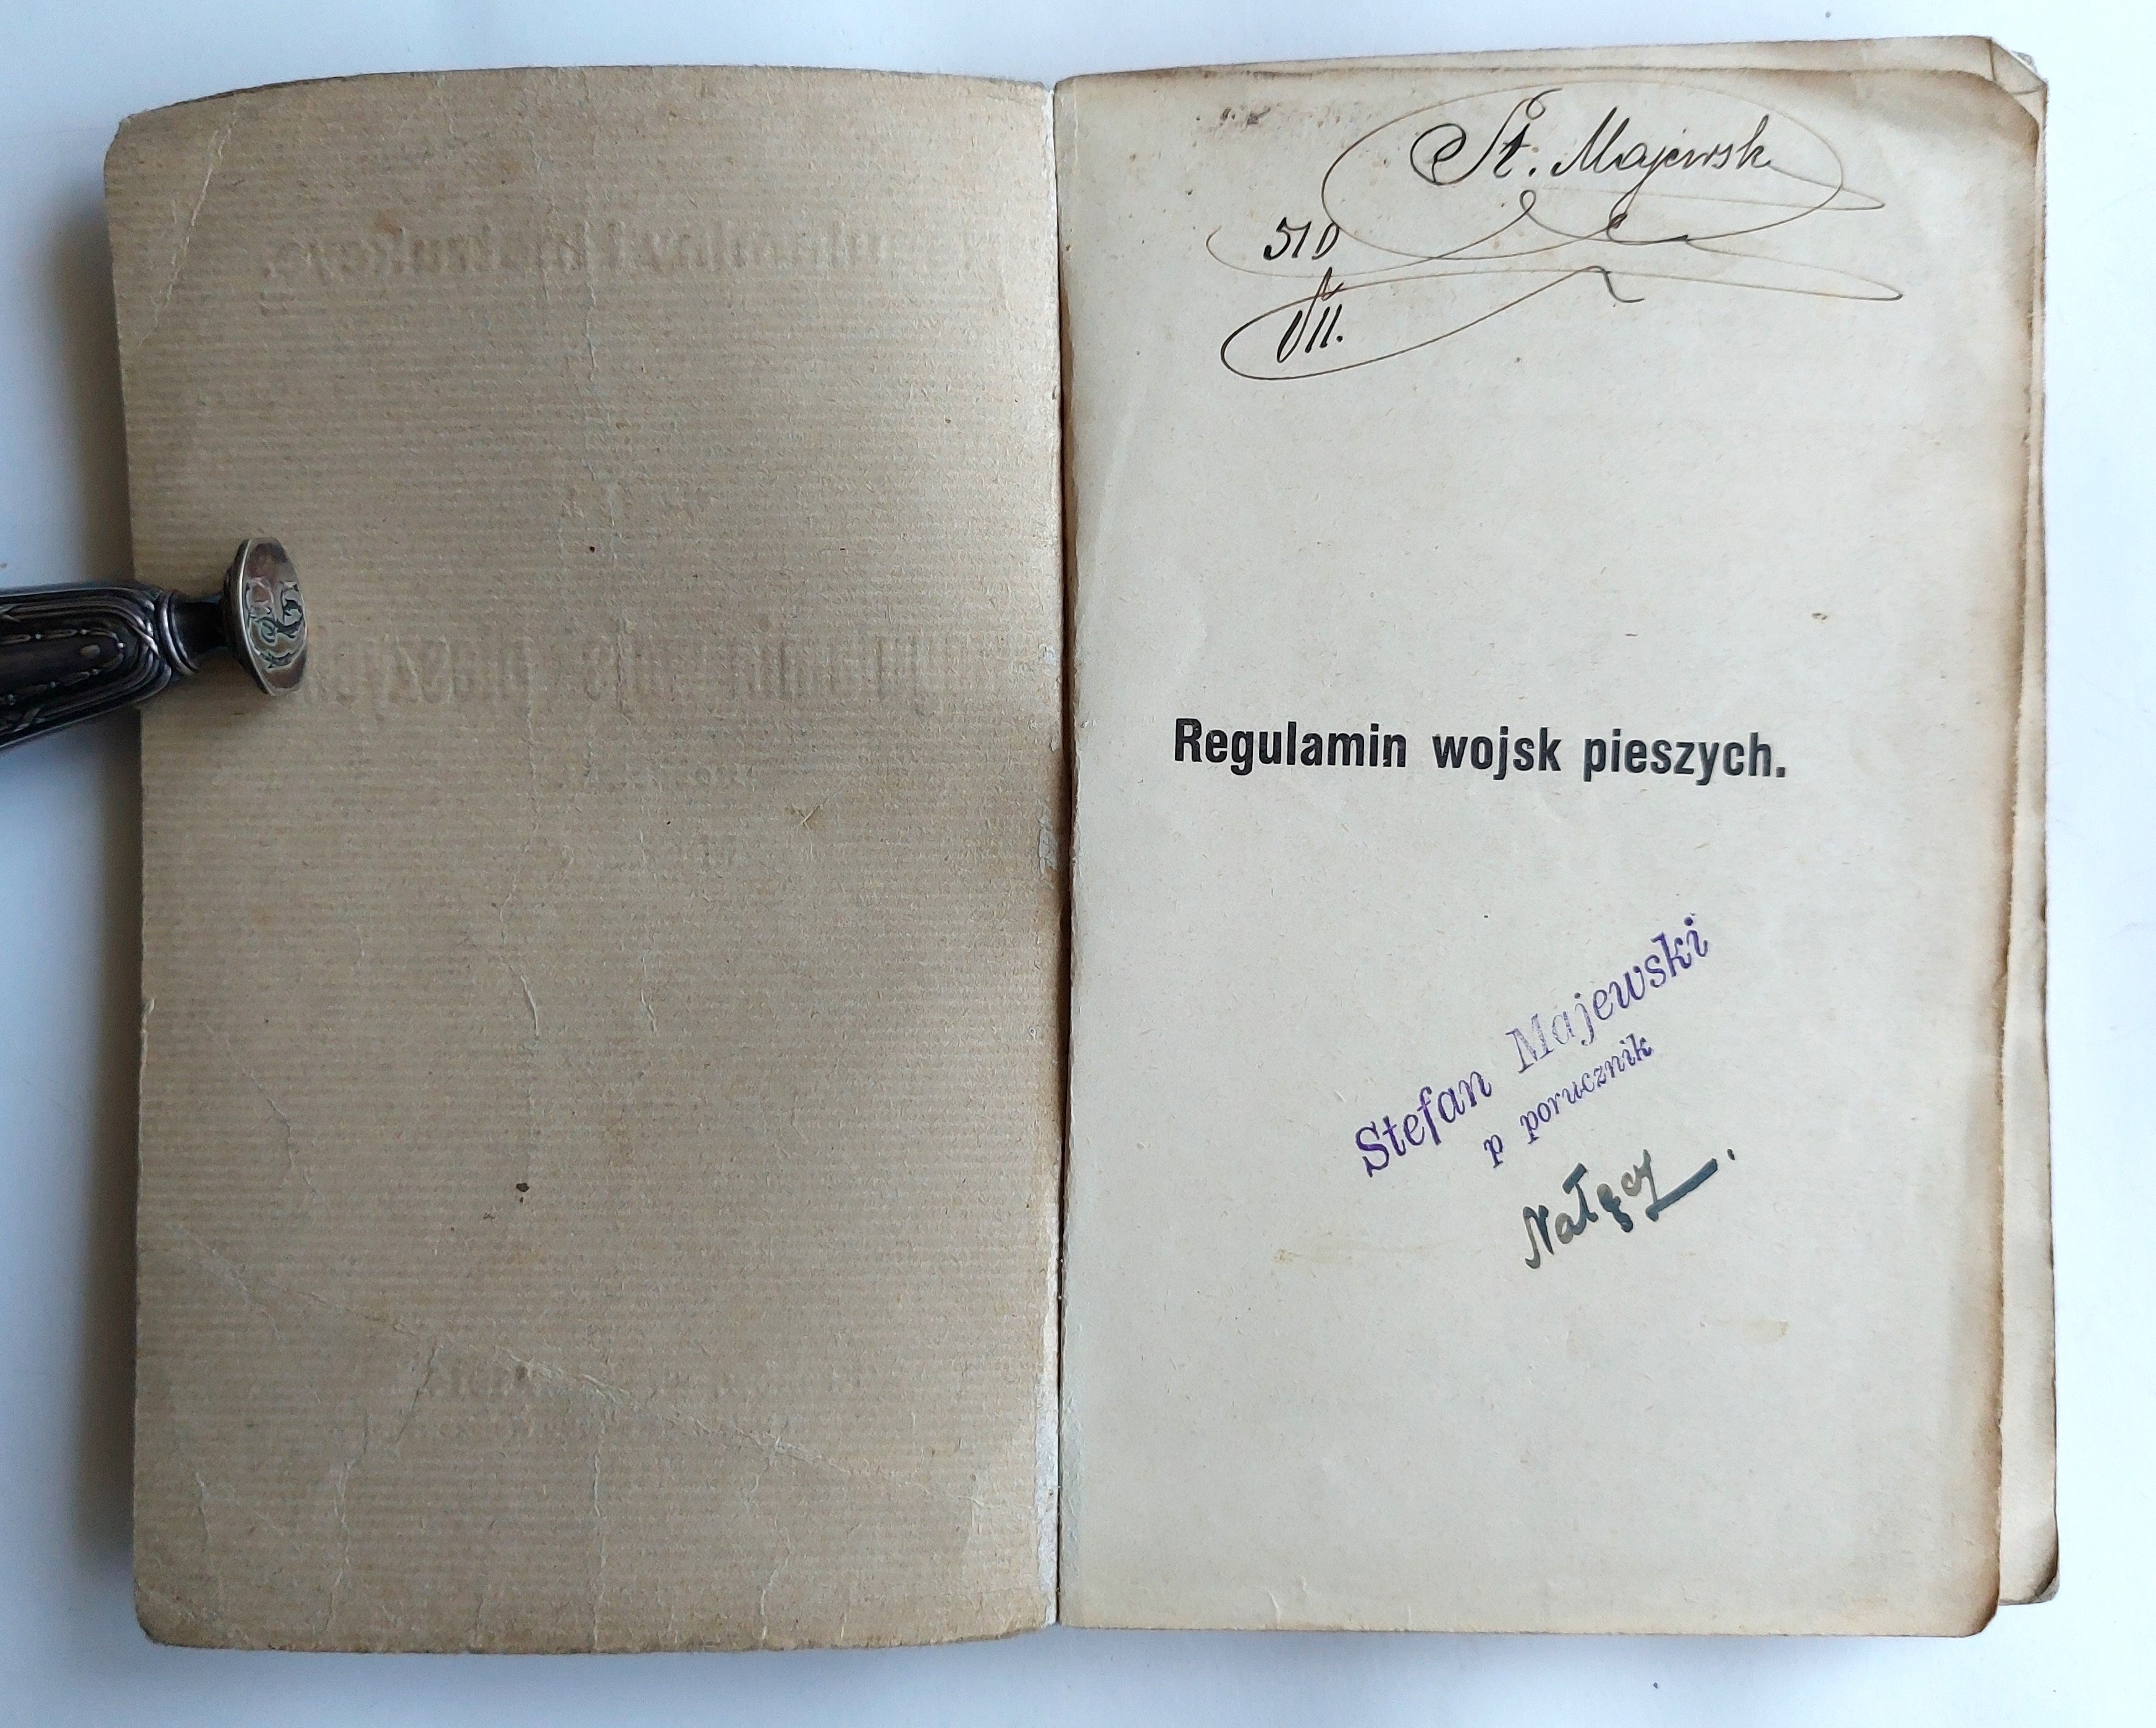 St. Majewski
VII.
Regulamin wojsk pieszych.
Stefan Majewski
p porucznik
Nałęcz.